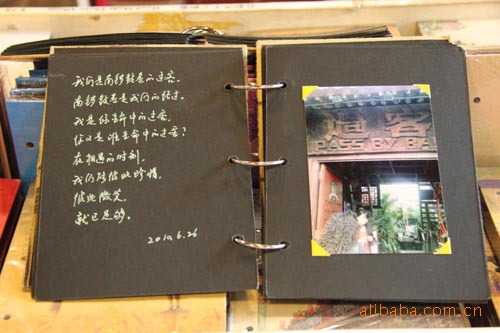 我们是南锣鼓巷的过客。
南锣鼓巷是我们的经过。
我是你生命中的过客。
你又是谁生命中的过客？
在相遇的时刻。
我们能彼此珍惜。
彼此微笑。
就已足够。
2010.6.26
过客
PASS BY BA
alibaba.com.cn